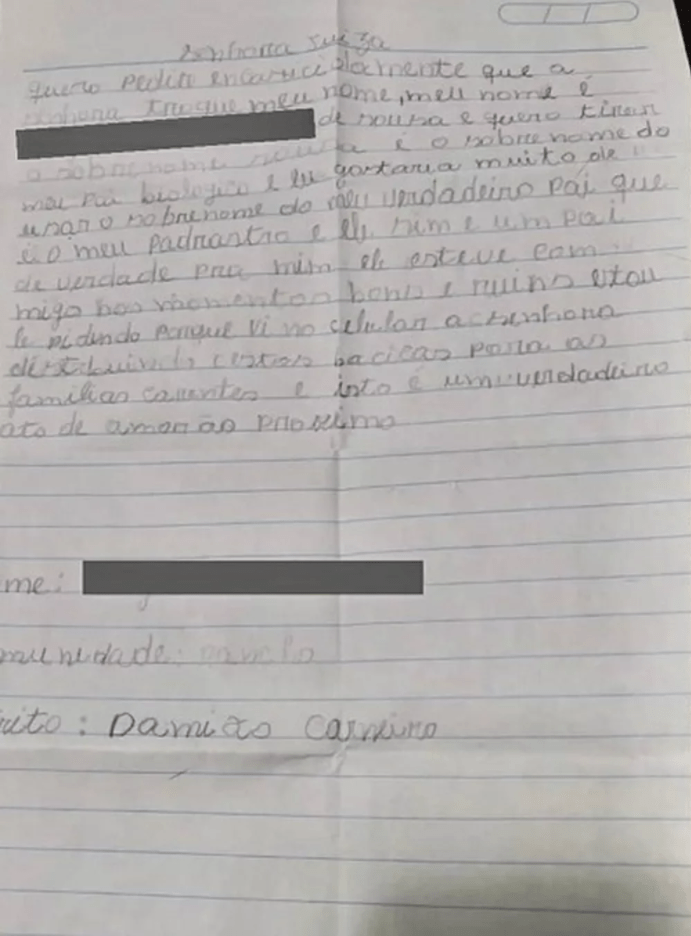 senhora juiza
quero pedir encarecidamente que a
senhora troque meu nome, meu nome é
de sousa e quero tirar
o sobrenome sousa é o sobrenome do
meu pai biologico e eu gostaria muito de
usar o sobrenome do meu verdadeiro pai que
é o meu padrastro e ele sim e um pai
de verdade pra mim ele esteve com
migo nos momentos bons e ruins estou
le pidindo porque vi no celular a senhora
distribuindo cestas bacicas para as
familias carentes e isto é um verdadeiro
ato de amor ao proseimo
me:
munidade:
rito: Damião Carneiro